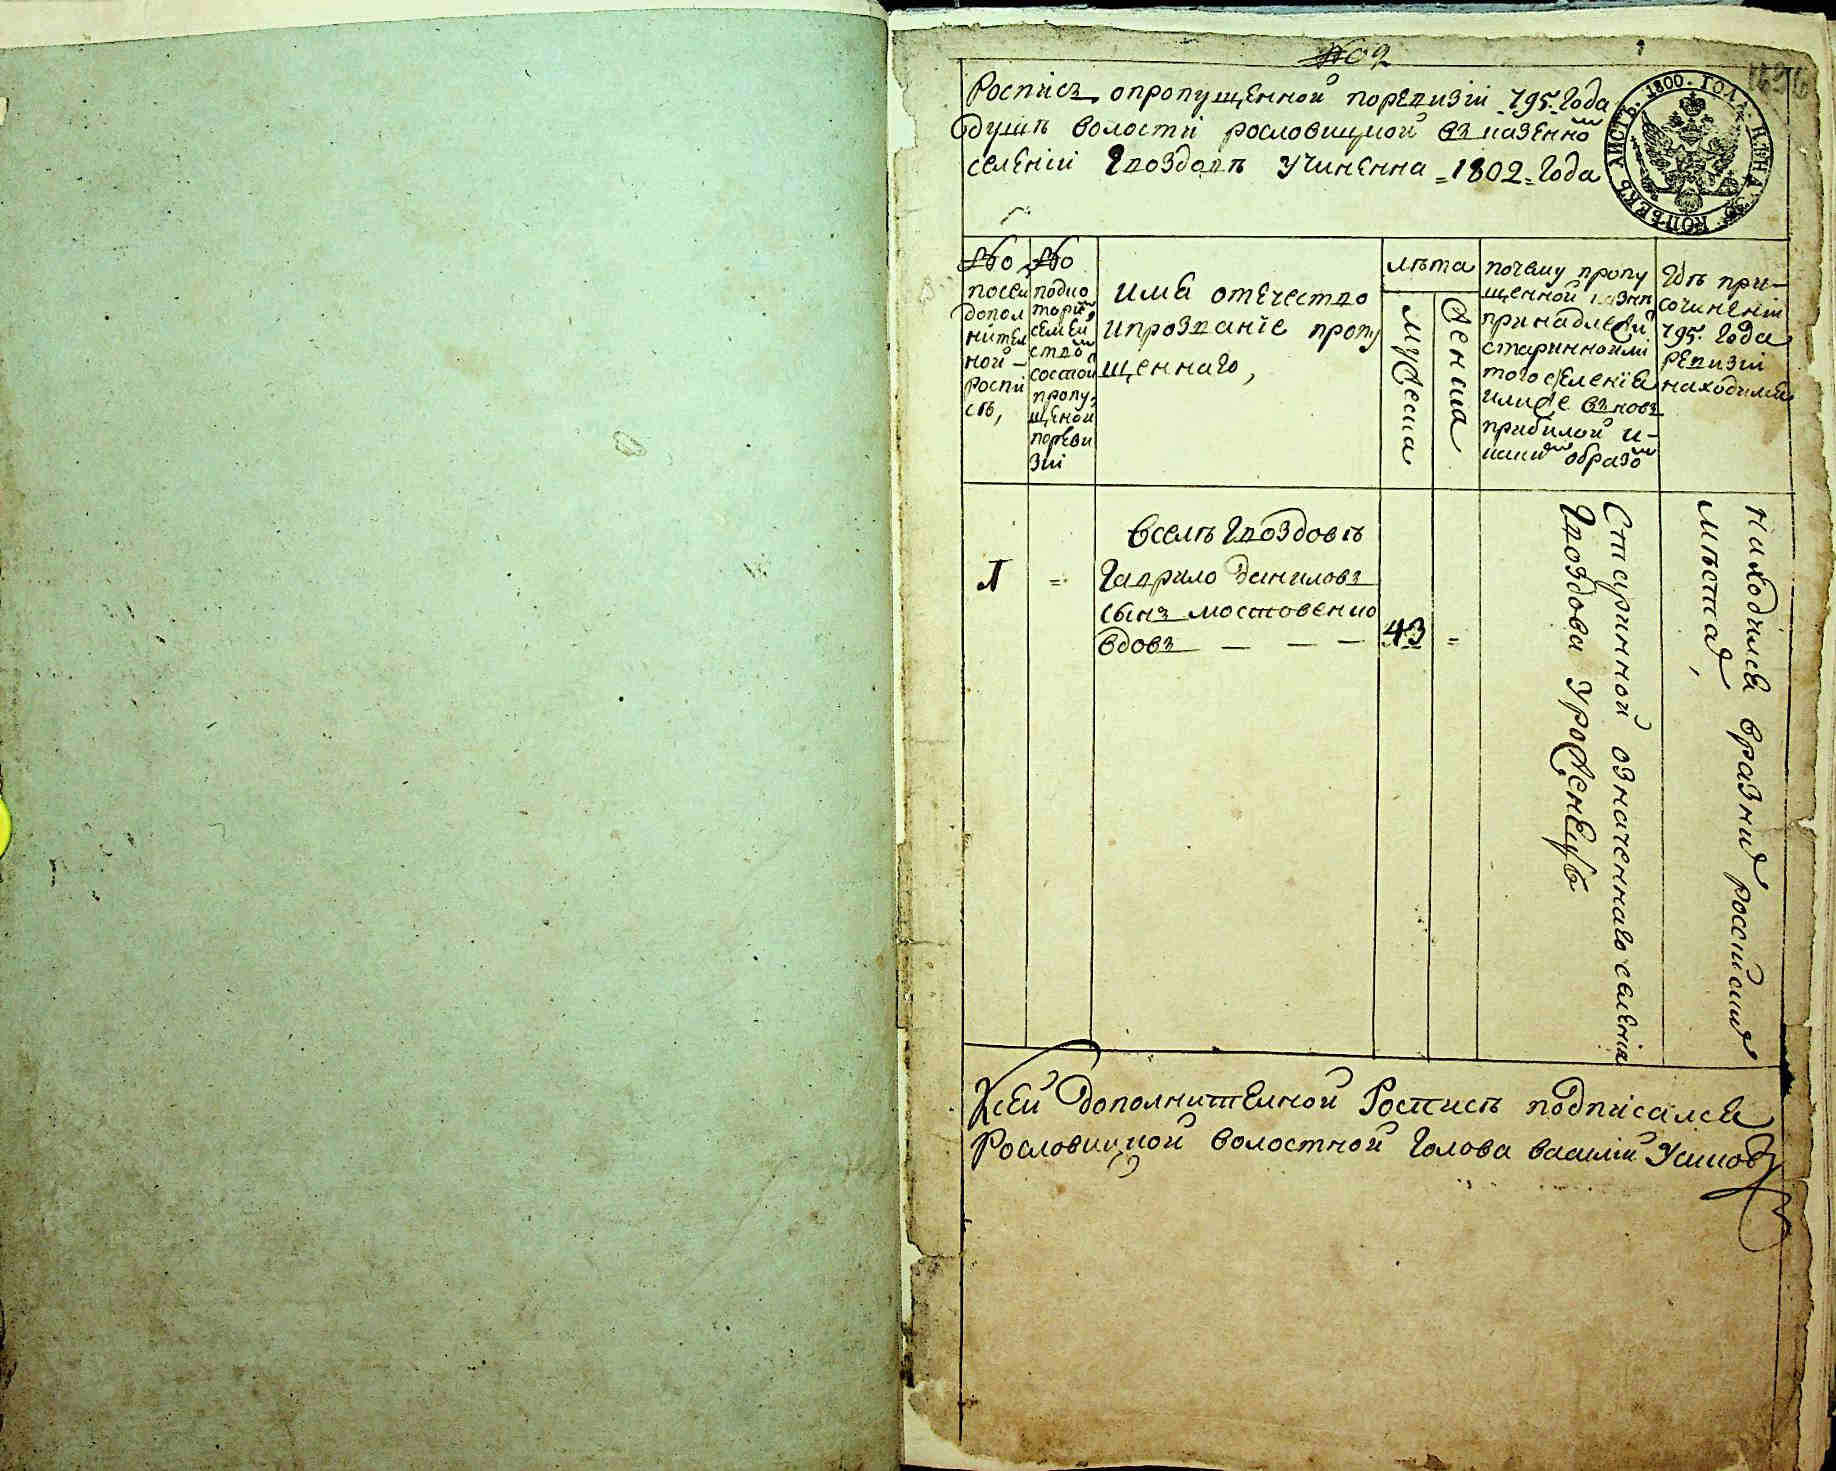 № 02
Росписъ опропущенной поревизiи 795. года
душѣ волости рословицкой въ казенно
селенiи Гвоздовѣ учиненна =1802= года
ЛИСТЪ. 1800. ГОДА. ЦѢНА 30 КОПѢЕКЪ
№о
посей
допол
нител
ной –
роспи
сѣ,
№о
подко
торы
семей
ство
состои
пропу
щеной
поревизiи
имя отечество
ипрозванiе пропу
щеннаго,
лѣта
мужеска
женска
почему пропу
щенной казнѣ
принадлежи
стариннойли
того селенiя
илиже въновъ
прибилой и–
каким образо
Гдѣ при–
сочиненiи
795. года
ревизiи
находился
1 =
вселѣ Гвоздовѣ
Гаврило Даниловъ
сынъ мостовенко
вдовъ — — — 43 =
Старинной означеннаго селенiя
Гвоздова уроженецъ
Находился вразних россiйских
мѣстах,
Ксей дополнителной Росписѣ подписался
Рословицкой волостной Голова василiй Усиков